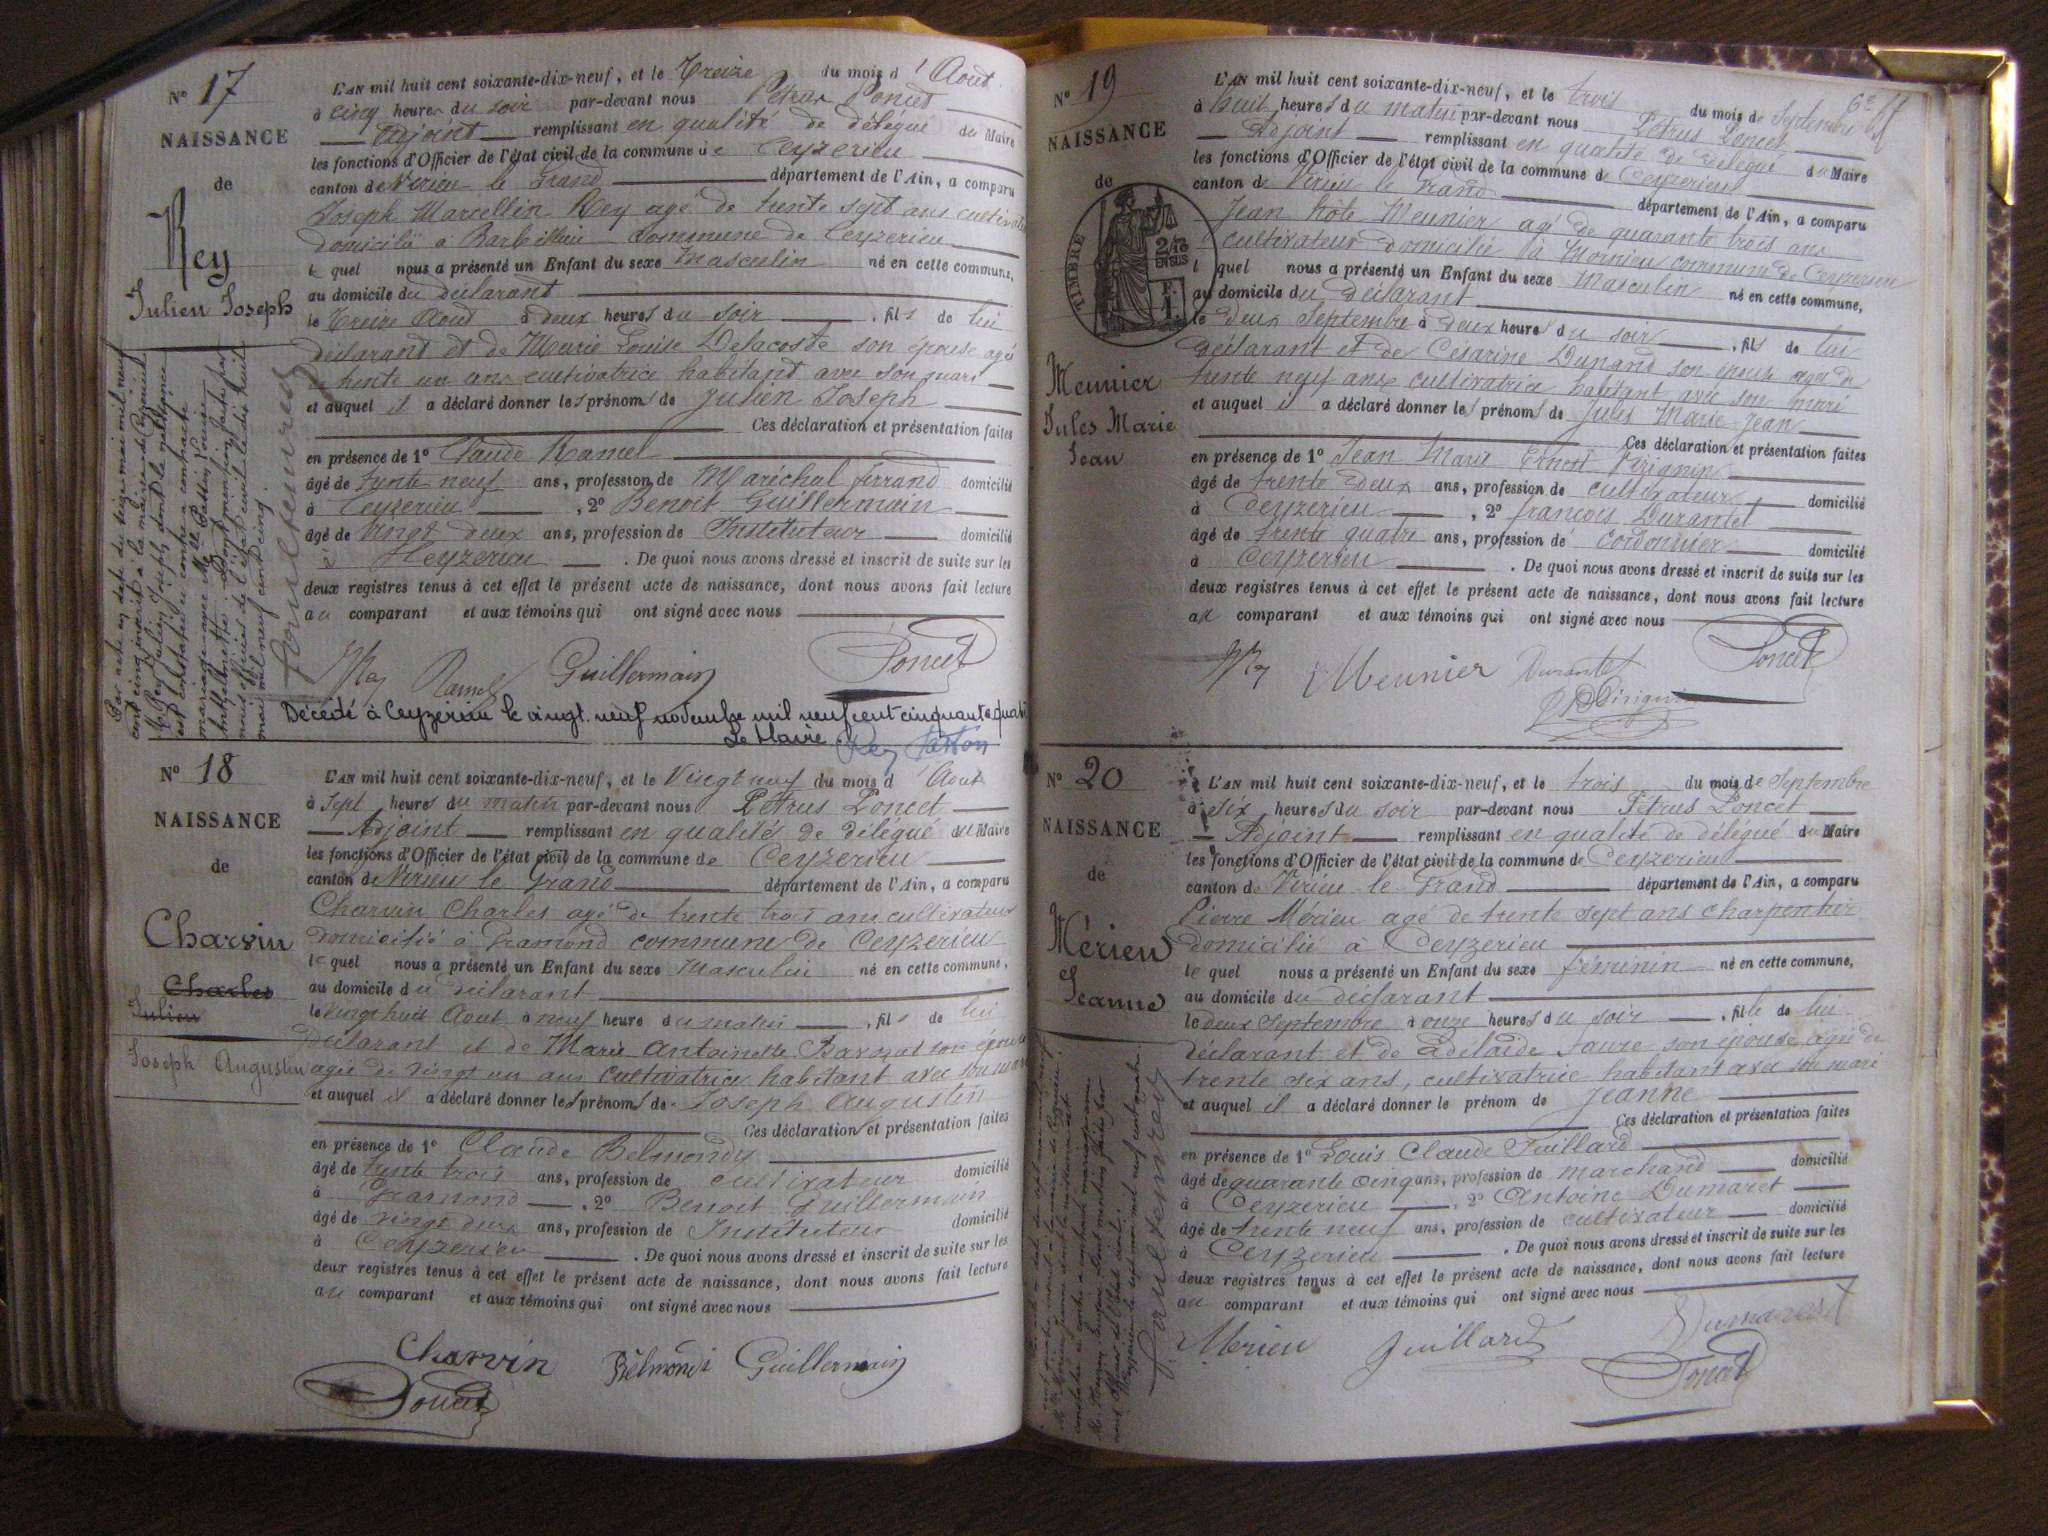 N° 17
NAISSANCE
de
Rey
Julien Joseph
L'AN mil huit cent soixante-dix-neuf, et le Treize du mois d'Aout
à cinq heures du soir par-devant nous Pétrus Poncet
Adjoint remplissant en qualité de délégué du Maire
les fonctions d'Officier de l'état civil de la commune de Ceyzerieu
canton de Virieu le Grand département de l'Ain, a comparu
Joseph Marcellin Rey agé de trente sept ans cultivateur
domicilié à Barbillieu commune de Ceyzerieu
lequel nous a présenté un Enfant du sexe Masculin né en cette commune,
au domicile du déclarant
le Treize Aout à deux heures du soir, fils de lui
déclarant et de Marie Louise Delacoste son épouse agée
de trente un ans cultivatrice habitant avec son mari
et auquel il a déclaré donner les prénoms de Julien Joseph
Ces déclaration et présentation faites
en présence de 1° Claude Ramel
âgé de trente neuf ans, profession de Maréchal ferrand domicilié
à Ceyzerieu, 2° Benoit Guillermain
âgé de vingt deux ans, profession de Instituteur domicilié
à Ceyzerieu. De quoi nous avons dressé et inscrit de suite sur les
deux registres tenus à cet effet le présent acte de naissance, dont nous avons fait lecture
au comparant et aux témoins qui ont signé avec nous
Rey Ramel Guillermain Poncet
Décédé à Ceyzerieu le vingt-neuf novembre mil neuf cent cinquante quatre
Le Maire
N° 18
NAISSANCE
de
Charvin
Charles
Julien
Joseph Augustin
L'AN mil huit cent soixante-dix-neuf, et le Vingt neuf du mois d'Aout
à sept heures du matin par-devant nous Pétrus Poncet
Adjoint remplissant en qualités de délégué du Maire
les fonctions d'Officier de l'état civil de la commune de Ceyzerieu
canton de Virieu le Grand département de l'Ain, a comparu
Charvin Charles agé de trente trois ans cultivateur
domicilié à Gramond commune de Ceyzerieu
lequel nous a présenté un Enfant du sexe Masculin né en cette commune,
au domicile du déclarant
le vingt huit Aout à neuf heure du matin, fils de lui
déclarant et de Marie Antoinette son épouse
agée de vingt un ans cultivatrice habitant avec son mari
et auquel il a déclaré donner les prénoms de Joseph Augustin
Ces déclaration et présentation faites
en présence de 1° Claude Belmondy
âgé de trente trois ans, profession de cultivateur domicilié
à Gramond, 2° Benoit Guillermain
âgé de vingt deux ans, profession de Instituteur domicilié
à Ceyzerieu. De quoi nous avons dressé et inscrit de suite sur les
deux registres tenus à cet effet le présent acte de naissance, dont nous avons fait lecture
au comparant et aux témoins qui ont signé avec nous
Charvin Belmondi Guillermain
Poncet
N° 19
NAISSANCE
de
TIMBRE
2/10
EN SUS
Meunier
Jules Marie
Jean
L'AN mil huit cent soixante-dix-neuf, et le trois du mois de Septembre
à huit heures du matin par-devant nous Pétrus Poncet
Adjoint remplissant en qualité de délégué du Maire
les fonctions d'Officier de l'état civil de la commune de Ceyzerieu
canton de Virieu le Grand département de l'Ain, a comparu
Jean Meunier agé de quarante trois ans
cultivateur domicilié à commune de Ceyzerieu
lequel nous a présenté un Enfant du sexe Masculin né en cette commune,
au domicile du déclarant
le deux Septembre à deux heures du soir, fils de lui
déclarant et de Césarine Dunand son épouse agée de
trente neuf ans cultivatrice habitant avec son mari
et auquel il a déclaré donner les prénoms de Jules Marie Jean
Ces déclaration et présentation faites
en présence de 1° Jean Marie Ernest
âgé de trente deux ans, profession de cultivateur domicilié
à Ceyzerieu, 2° françois Durantet
âgé de trente quatre ans, profession de cordonnier domicilié
à Ceyzerieu. De quoi nous avons dressé et inscrit de suite sur les
deux registres tenus à cet effet le présent acte de naissance, dont nous avons fait lecture
au comparant et aux témoins qui ont signé avec nous
Meunier Durantet Poncet
N° 20
NAISSANCE
de
Mérieu
Jeanne
L'AN mil huit cent soixante-dix-neuf, et le trois du mois de Septembre
à six heures du soir par-devant nous Pétrus Poncet
Adjoint remplissant en qualité de délégué du Maire
les fonctions d'Officier de l'état civil de la commune de Ceyzerieu
canton de Virieu le Grand département de l'Ain, a comparu
Pierre Mérieu agé de trente sept ans charpentier
domicilié à Ceyzerieu
lequel nous a présenté un Enfant du sexe féminin né en cette commune,
au domicile du déclarant
le deux Septembre à onze heures du soir, fille de lui
déclarant et de Adélaïde Faure son épouse, agée de
trente six ans, cultivatrice habitant avec son mari
et auquel il a déclaré donner le prénom de Jeanne
Ces déclaration et présentation faites
en présence de 1° Louis Claude Juillard
âgé de quarante cinq ans, profession de marchand domicilié
à Ceyzerieu, 2° Antoine Dumaret
âgé de trente neuf ans, profession de cultivateur domicilié
à Ceyzerieu. De quoi nous avons dressé et inscrit de suite sur les
deux registres tenus à cet effet le présent acte de naissance, dont nous avons fait lecture
au comparant et aux témoins qui ont signé avec nous
Mérieu Juillard Dumarest
Poncet